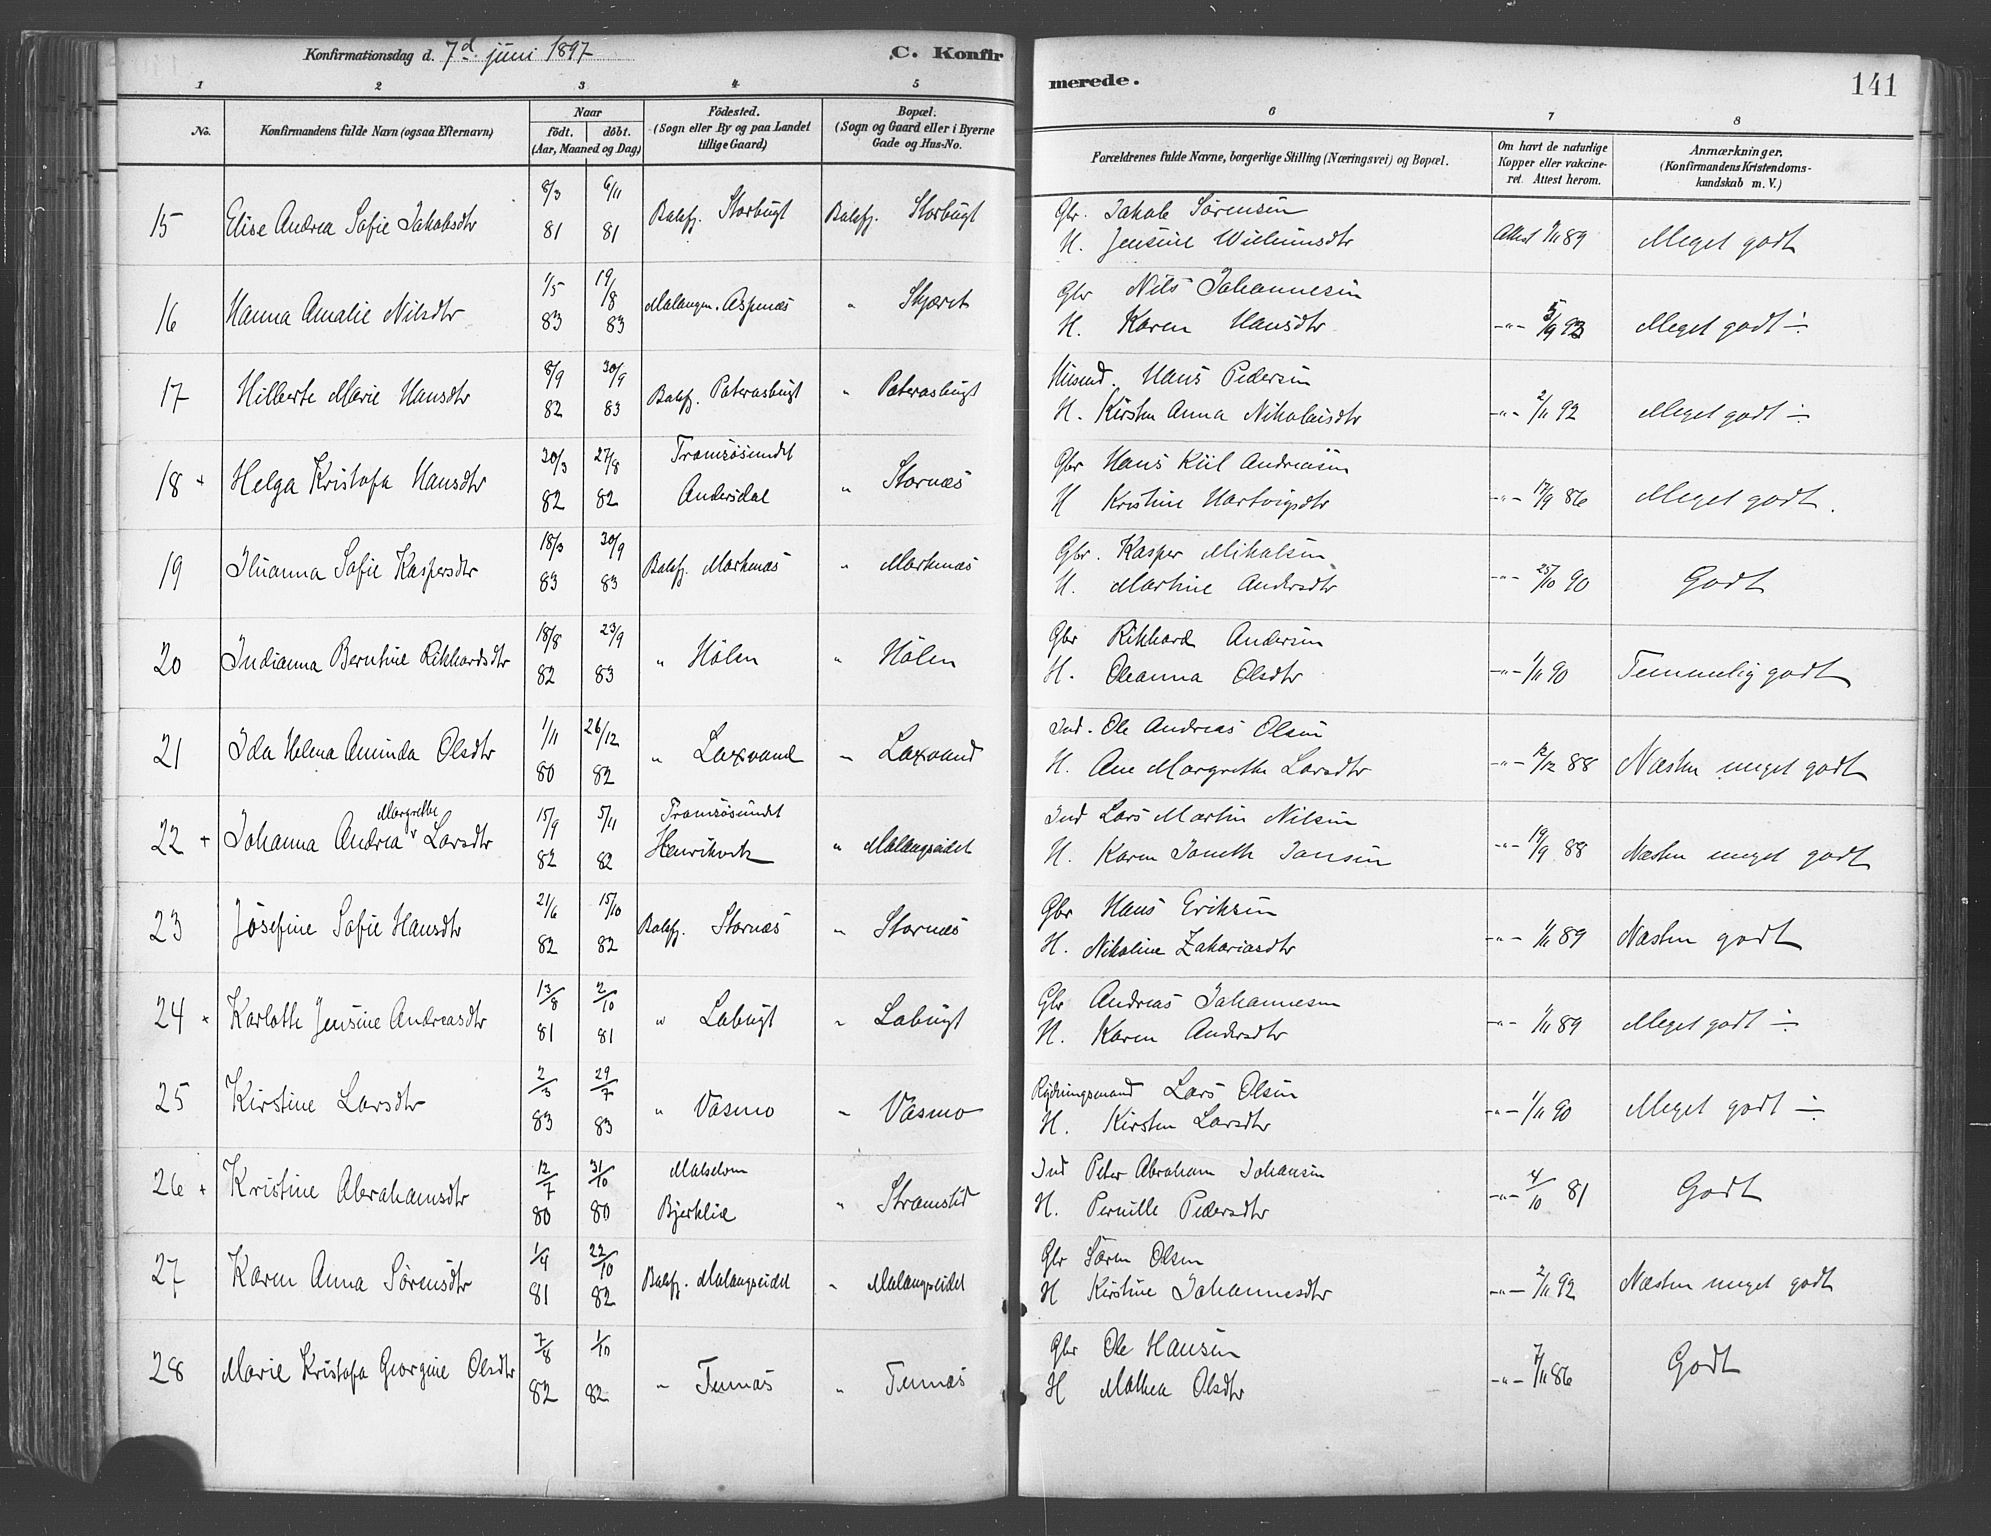 Konfirmationsdag d. 7d juni 1897
C. Konfirmerede.
141
1 2 3 4 5 6 7 8
No.
Konfirmandens fulde Navn (ogsaa Efternavn)
Naar
født. døbt.
(Aar, Maaned og Dag)
Fødested.
(Sogn eller By og paa Landet tillige Gaard)
Bopæl.
(Sogn og Gaard eller i Byerne Gade og Hus-No.
Forældrenes fulde Navne, borgerlige Stilling (Næringsvei) og Bopæl.
Om havt de naturlige Kopper eller vakcineret. Attest herom.
Anmærkninger.
(Konfirmandens Kristendomskundskab m. V.)
15 Elise Andrea Sofie Jakobsdtr 8/3 81 6/11 81 Balsfj. Storbugt Balsfj. Storbugt
Gbr. Jakob Sørensen
H. Jensine Wilumsdtr
Attest 1/11 89 Meget godt
16 Hanna Amalie Nilsdtr 1/5 83 19/8 83 Malangen. Aspenæs " Skjæret
Gbr Nils Johannesen
H. Karen Hansdtr
-"- 5/9 93 Meget godt ÷
17 Hilberte Marie Hansdtr 8/9 82 30/9 83 Balsfj. Paterasbugt " Paterasbugt
Husmd. Hans Pedersen
H. Kirsten Anna Nikolaisdtr
-"- 2/11 92 Meget godt ÷
18 + Helga Kristofa Hansdtr 30/3 82 27/8 82 Tromsøsundet Andersdal " Stornæs
Gbr Hans Kiil Andreasen
H Kristine Hartvigsdtr
-"- 17/9 86 Meget godt.
19 Sofie Kaspersdtr 18/3 83 30/9 83 Balsfj. Markenæs " Markenæs
Gbr. Kasper Mikalsen
H. Martine Andersdtr
-"- 25/10 90 Godt
20 Indianna Berntine Rikhardsdtr 18/8 82 23/9 83 " Hølen " Hølen
Gbr Rikhard Andersen
H. Oleanna Olsdtr
-"- 1/11 90 Temmelig godt
21 Ida Helena Aminda Olsdtr 1/11 80 26/12 82 " Laxvand " Laxvand
Ind. Ole Andreas Olsen
H. Ane Margrethe Larsdtr
-"- 12/12 88 Næsten meget godt
22 + Johanna Andrea Margrethe Larsdtr 15/9 82 5/11 82 Tromsøsundet Henrikvik " Malangseidet
Ind Lars Martin Nilsen
H. Karen Janeth Jansen
-"- 19/9 88 Næsten meget godt
23 Josefine Sofie Hansdtr 21/6 82 15/10 82 Balsfj. Stornæs " Stornæs
Gbr Hans Eriksen
H. Nikoline Zakariasdtr
-"- 1/11 89 Næsten godt
24 + Karlotte Jensine Andreasdtr 13/8 81 2/10 81 " Labugt " Labugt
Gbr Andreas Johannesen
H. Karen Andersdtr
-"- 1/11 89 Meget godt ÷
25 Kirstine Larsdtr 2/3 83 29/7 83 " Vasmo " Vasmo
Rydningsmand Lars Olsen
H. Kirsten Larsdtr
-"- 1/11 90 Meget godt ÷
26 + Kristine Abrahamsdtr 12/7 80 31/10 80 Malselven Bjerklid " Strømslid
Ind Peter Abraham Johansen
H. Pernille Pedersdtr
-"- 4/10 81 Godt
27 Karen Anna Sørensdtr 1/4 81 22/10 82 Balsfj. Malangseidet " Malangseidet
Gbr Søren Olsen
H Kirstine Johannesdtr
-"- 2/11 92 Næsten meget godt
28 Marie Kristofa Georgine Olsdtr 7/8 82 1/10 82 " Tennæs " Tennæs
Gbr Ole Hansen
H Mathea Olsdtr
-"- 7/11 86 Godt